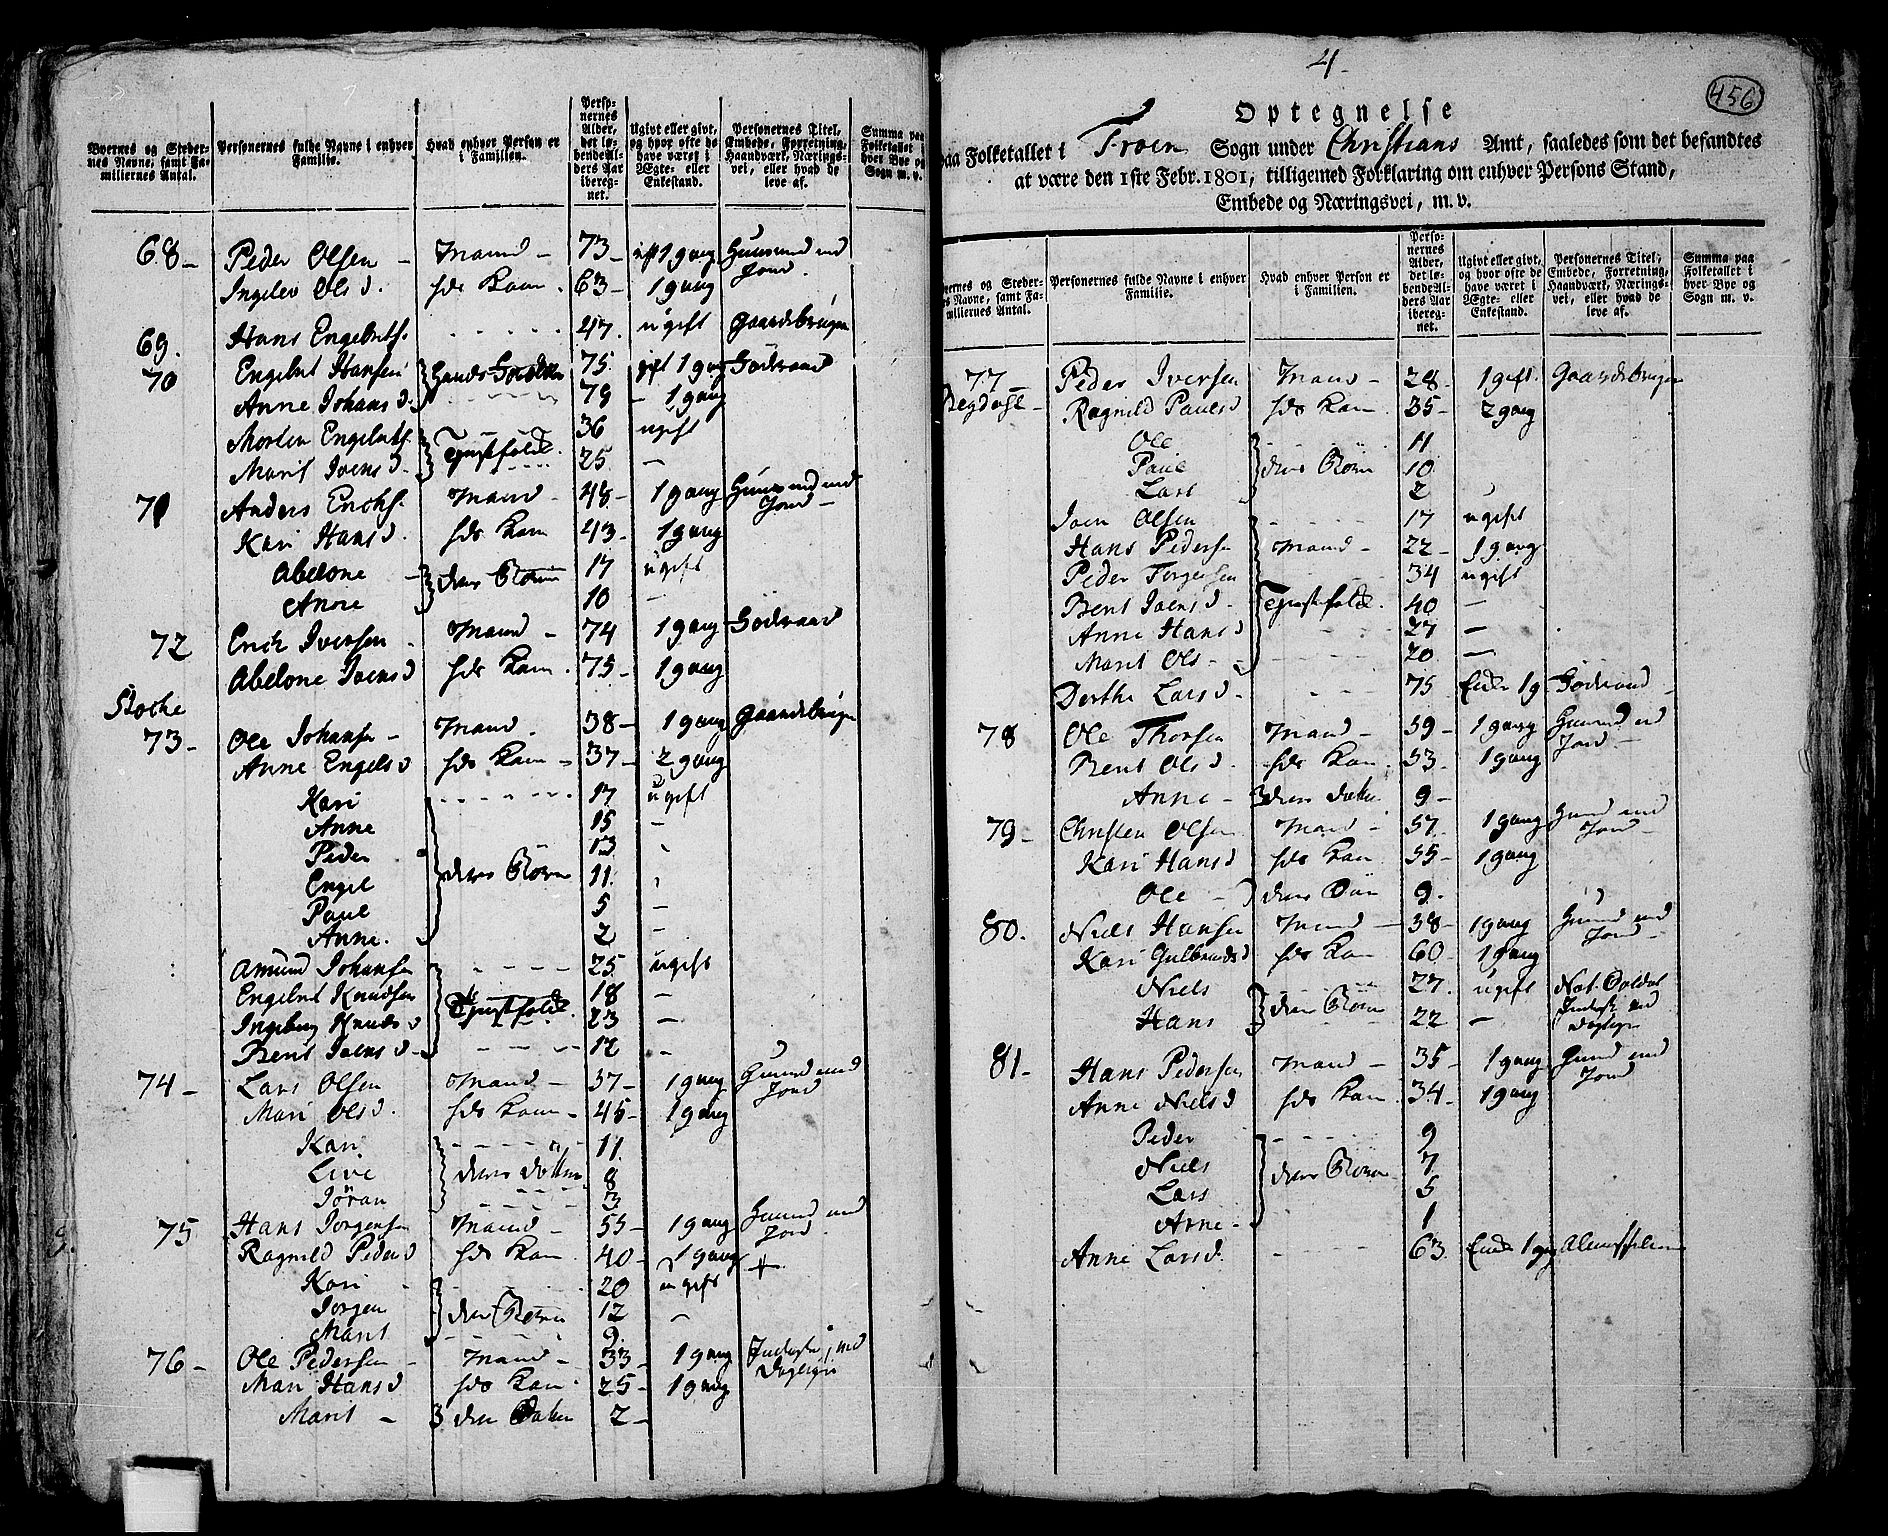 Byernes og Stedernes Navne, samt Familiernes Antal. Personernes fulde Navne i enhver Familie. Hvad enhver Person er i Familien. Personernes Alder, det løbende Alders Aar iberegnet. Ugivt eller givt, og hvor ofte de have været i Ægte- eller Enkestand. Personernes Titel, Embede, Forretning, Haandværk, Næringsvei, eller hvad de leve af. Summa paa Folketallet hver Bye og Sogn m. v.
68 - Peder Olsen - Mand - 73 - gift 1 gang Huusmand med Jord.
Ingelev Ols d. hds Kone. 63 - 1 gang
69. Hans Engebrets. 47. ugift Gaardebruger
70 Engebret Hansen 75. gift 1 gang Födraad
Anne Johans d. 79 - 1 gang
Morten Engebrets. 36 ugift
Marit Joens d. Tjenstfolk. 25 -
71 Anders Erichs. Mand - 48 - 1 gang Huusmand med Jord -
Kari Hans d. hds Kone 43 - 1 gang
Abelone - deres Börn 17 ugift
Anne 10 -
72 Erich Iversen - Mand - 74 1 gang Födraad
Abelone Joens d hds Kone. 75 - 1 gang
Stoche
73 - Ole Johansen - Mand - 38 - 1 gang Gaardebruger
Anne Engels d hds Kone - 37 - 2 gang
Kari 17 ugift
Anne 15 -
Peder 13
Engel deres Börn 11.
Paul 5 -
Anne. 2 -
Amund Johansen 25 ugift
Engebret Knudsen Tjenstfolk. 18 -
Ingeborg Knuds d 23 -
Berit Joens d - 12 -
74 - Lars Olsen Mand - 37 - 1 gang Huusmand med Jord
Mari Ols d. hds Kone - 45 - 1 gang
Kari 11.
Live deres döttre 8
Jöran 3
75 Hans Jorgensen Mand - 55 - 1 gang Huusmand med Jord.
Ragnild Peders d hds Kone 40 - 1 gang +
Kari 20 ugift
Jorgen deres Börn 12 -
Marit 9.
76 - Ole Pedersen - Mand - 33 - 1 gang Inderste, med Dagleje
Mari Hans d hds Kone. 25 - 1 gang
Marit - deres Datter 2 -
4.
456
Optegnelse
paa Folketallet i Froen Sogn under Christians Amt, saaledes som det befandtes
at være den 1ste Febr. 1801, tilligemed Forklaring om enhver Persons Stand,
Embede og Næringsvei, m. v.
Byernes og Stedernes Navne, samt Familiernes Antal. Personernes fulde Navne i enhver Familie. Hvad enhver Person er i Familien. Personernes Alder, det løbende Alders Aar iberegnet. Ugivt eller givt, og hvor ofte de have været i Ægte- eller Enkestand. Personernes Titel, Embede, Forretning, Haandværk, Næringsvei, eller hvad de leve af. Summa paa Folketallet i hver Bye og Sogn m. v.
77 - Peder Iversen Mand - 28 - 1 gift. Gaardebruger
Ragnild Pauls d hds Kone. 35 - 2 gang
Ole 11
Paul deres Börn 10
Lars 2
Joen Olsen 17 ugift
Hans Pedersen Mand - 22 - 1 gang
Peder Torgersen 34 ugift
Berit Joens d. Tjenstfolk. 40 -
Anne Hans d 27 -
Marit Ols - 20 -
Dorthe Lars d. 75 Enke 1 g Födraad
78 Ole Thorsen Mand - 59 - 1 gang Huusmand med Jord. -
Berit Ols d. hds Kone. 53 - 1 gang
Anne - deres datter 9 -
79 - Christen Olsen Mand - 57. 1 gang Huusmand med Jord -
Kari Hans d hds Kone 55 - 1 gang
Ole - deres Sön 9.
80. Niels Hansen Mand - 38 - 1 gang Huusmand med Jord -
Kari Gulbrands d hds Kone 60 - 1 gang
Niels 27. ugift Nat. Soldat
Hans deres Börn 22 - Inderste med Dagleje
81 - Hans Pedersen Mand - 35 - 1 gang Huusmand med Jord
Anne Niels d hds Kone. 34 - 1 gang
Peder 9
Niels deres Börn 7
Lars 5
Anne - 1
Anne Lars d. 63. Enke 1 gang Almisselem